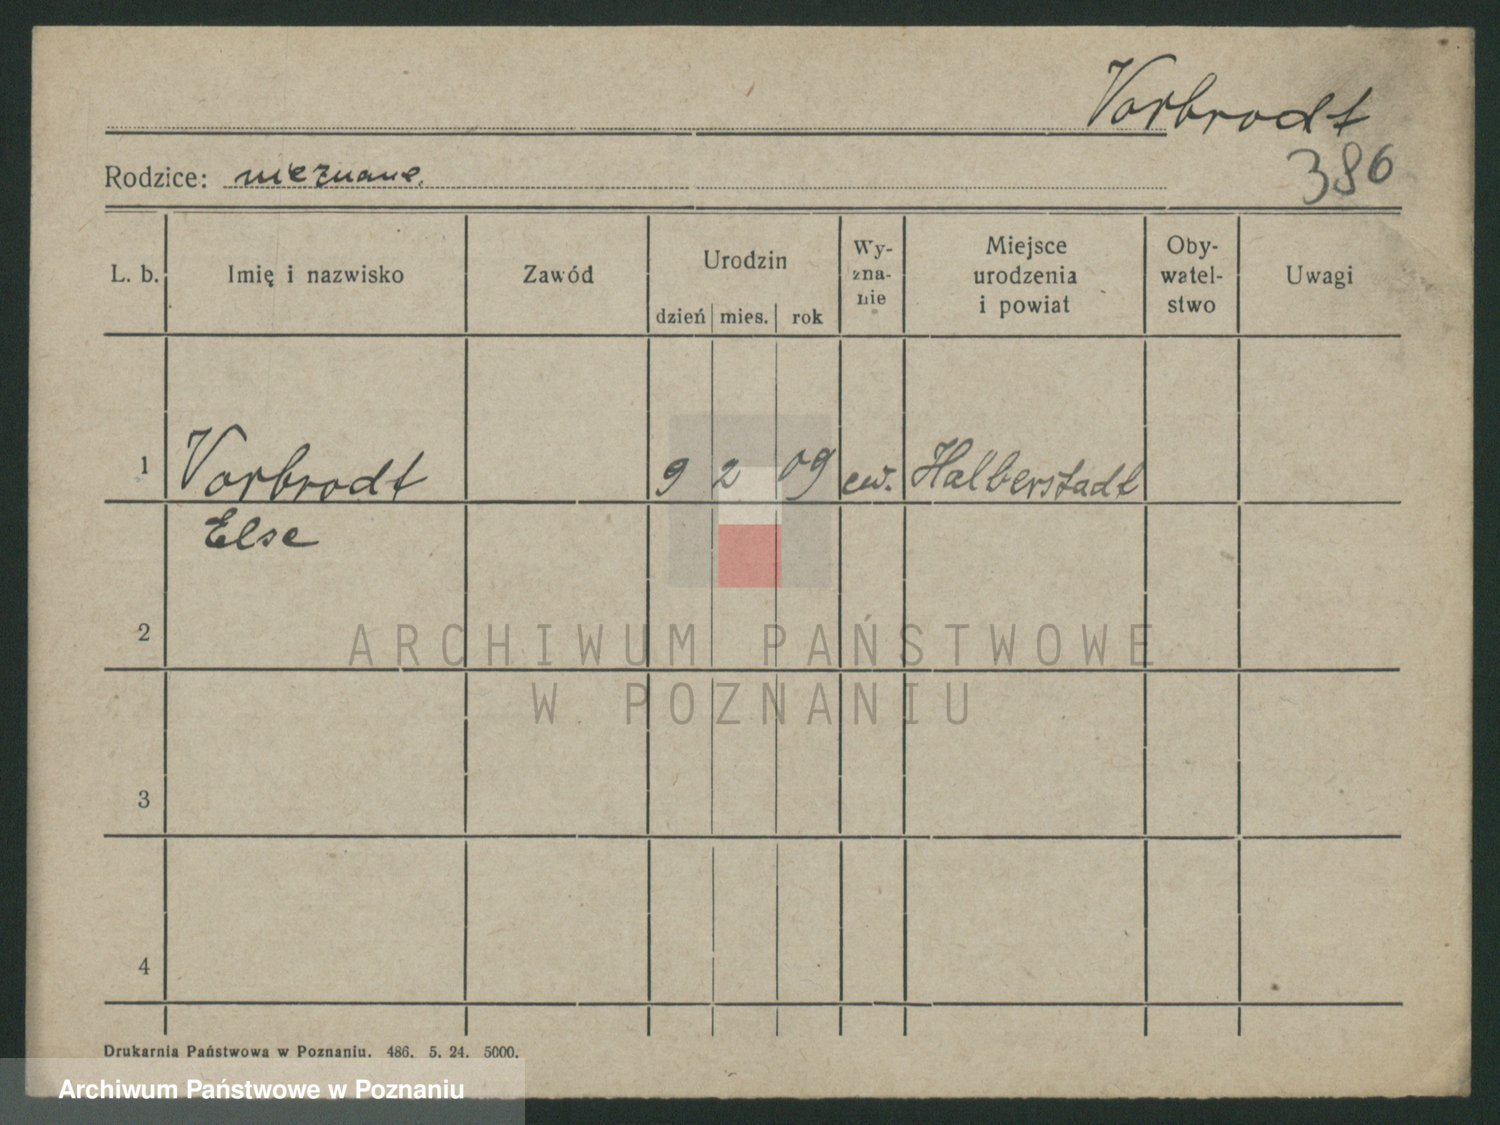 Vorbrodt
Rodzice: nieznane.
386
L. b.
Imię i nazwisko
Zawód
Urodzin
dzień mies. rok
Wy-
zna-
nie
Miejsce
urodzenia
i powiat
Oby-
watel-
stwo
Uwagi
1 Vorbrodt 9 2 09 ew. Halberstadt
Else
2
ARCHIWUM PAŃSTWOWE
W POZNANIU
3
4
Drukarnia Państwowa w Poznaniu. 486. 5. 24. 5000.
Archiwum Państwowe w Poznaniu